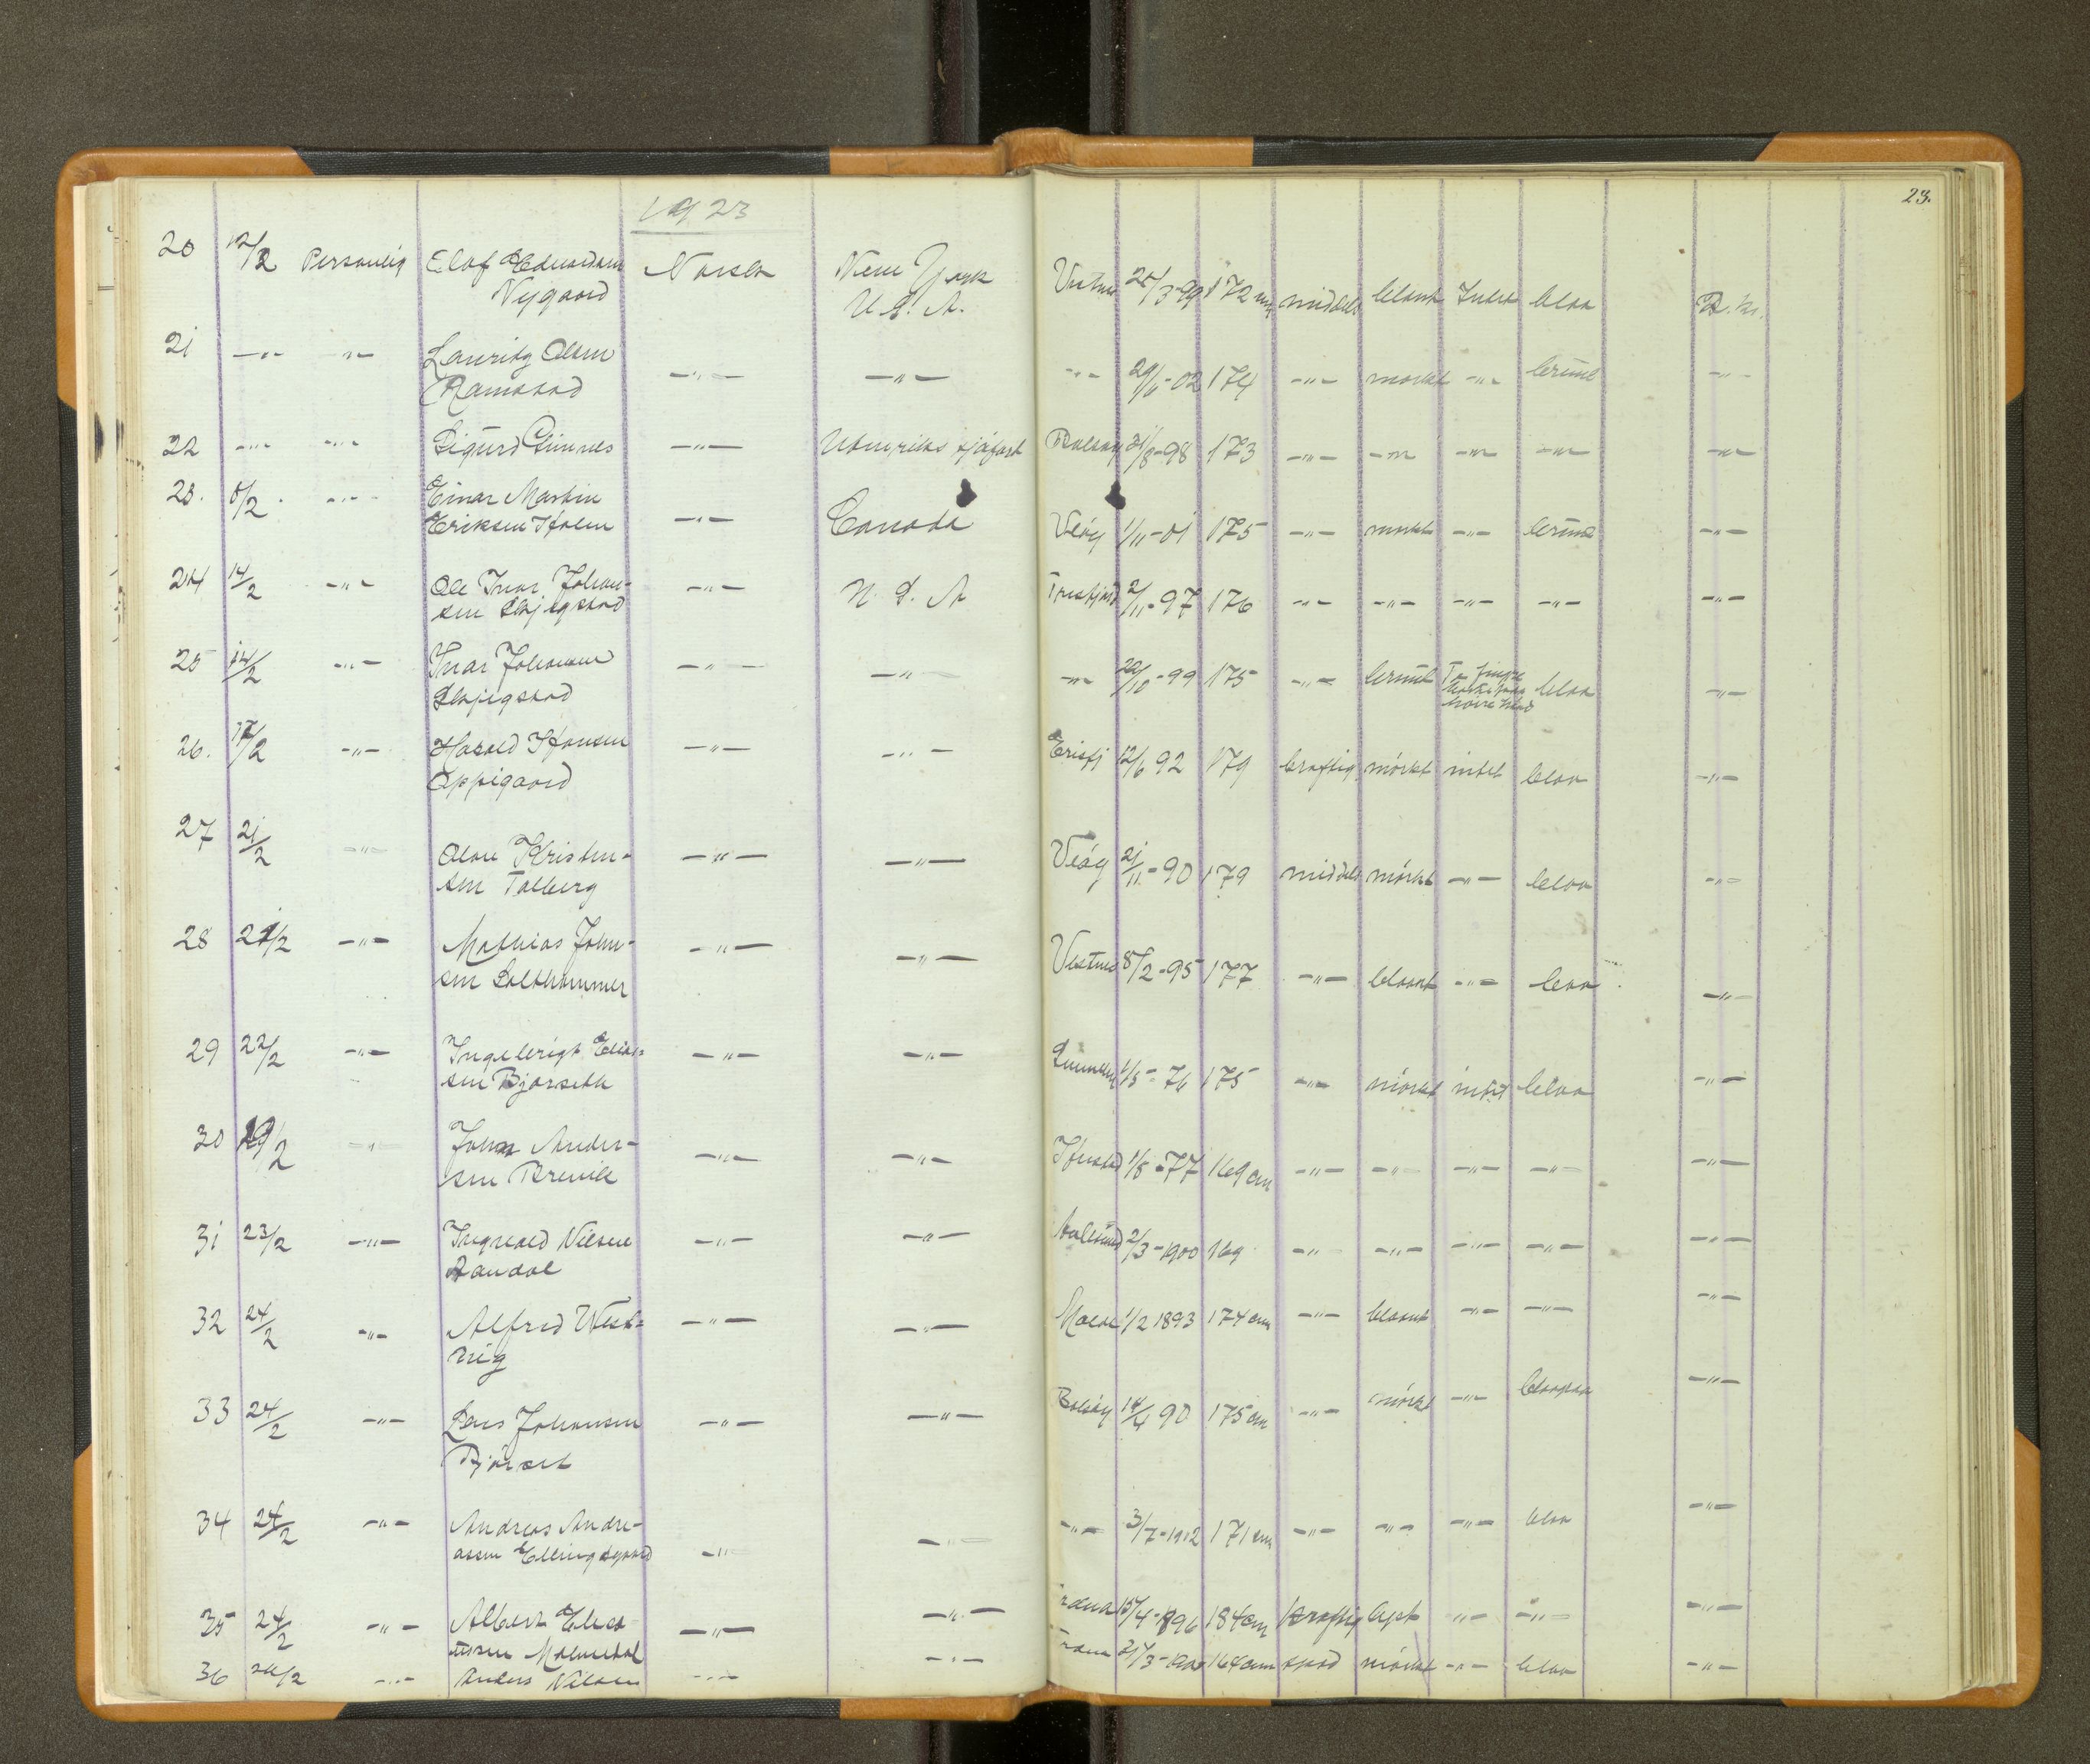 1923
23.
20 12/2 Personlig Olaf Edvardsen Norsk New York
Nygaard U. S. A.
25/3-99 172 cm middels blondt Intet blaa
21 -"- -"- Lauritz Olsen
Ramstad -"- -"- -"- 29/6-02 174 -"- mörkt -"- brune -"-
22 -"- -"- Sigurd Grinnes -"- Utenriks sjöfart Bolsöy 31/8-98 173 -"- -"- -"- -"- -"-
23. 5/2 -"- Einar Martin
Eriksen Holm -"- Canada Veöy 1/11-01 175 -"- mörkt -"- brune -"-
24 14/2 -"- Ole Ivar Johan-
sen Skjegstad -"- U. S. A Tresfjord 2/11-97 176 -"- -"- -"- -"- -"-
25 14/2 -"- Ivar Johansen
Skjegstad -"- -"- -"- 22/10-99 175 -"- brunt To fingre
venstre haand blaa -"-
26. 17/2 -"- Harald Hansen
Oppigaard -"- -"- Erisfj 12/6 92 179 kraftig mörkt intet blaa -"-
27 21/2 -"- Olav Kristen-
sen Talberg -"- -"- Veöy 21/11-90 179 middels mörkt -"- blaa -"-
28 21/2 -"- Mathias John-
sen Solthammer -"- -"- Vestnes 8/2-95 177 -"- blondt -"- blaa -"-
29 22/2 -"- Ingebrigt Elias-
sen Bjørseth -"- -"- 1/5-76 175 -"- mörkt intet blaa -"-
30 19/2 -"- John Ander-
sen Brevik -"- -"- 1/8-77 169 cm -"- -"- -"- -"- -"-
31 23/2 -"- Ingvald Nilsen
Aandal -"- -"- Aalesund 2/3-1900 169 -"- -"- -"- -"- -"-
32 24/2 -"- Alfred West-
vig -"- -"- Molde 1/2 1893 174 cm -"- blondt -"- -"- -"-
33 24/2 -"- Lars Johansen
Bjørset -"- -"- Bolsöy 14/4 90 175 cm -"- mörkt -"- blaagraa -"-
34 24/2 -"- Andreas Andre-
assen Ellingsgaard -"- -"- -"- 3/7-1902 171 cm -"- -"- -"- blaa -"-
35 24/2 -"- Albert
Malmedal -"- -"- Fræna 15/4-1896 184 cm kraftig lyst -"- -"- -"-
36 24/2 -"- Anders Nilsen -"- -"- Fræna 164 cm spæd mörkt -"- blaa -"-